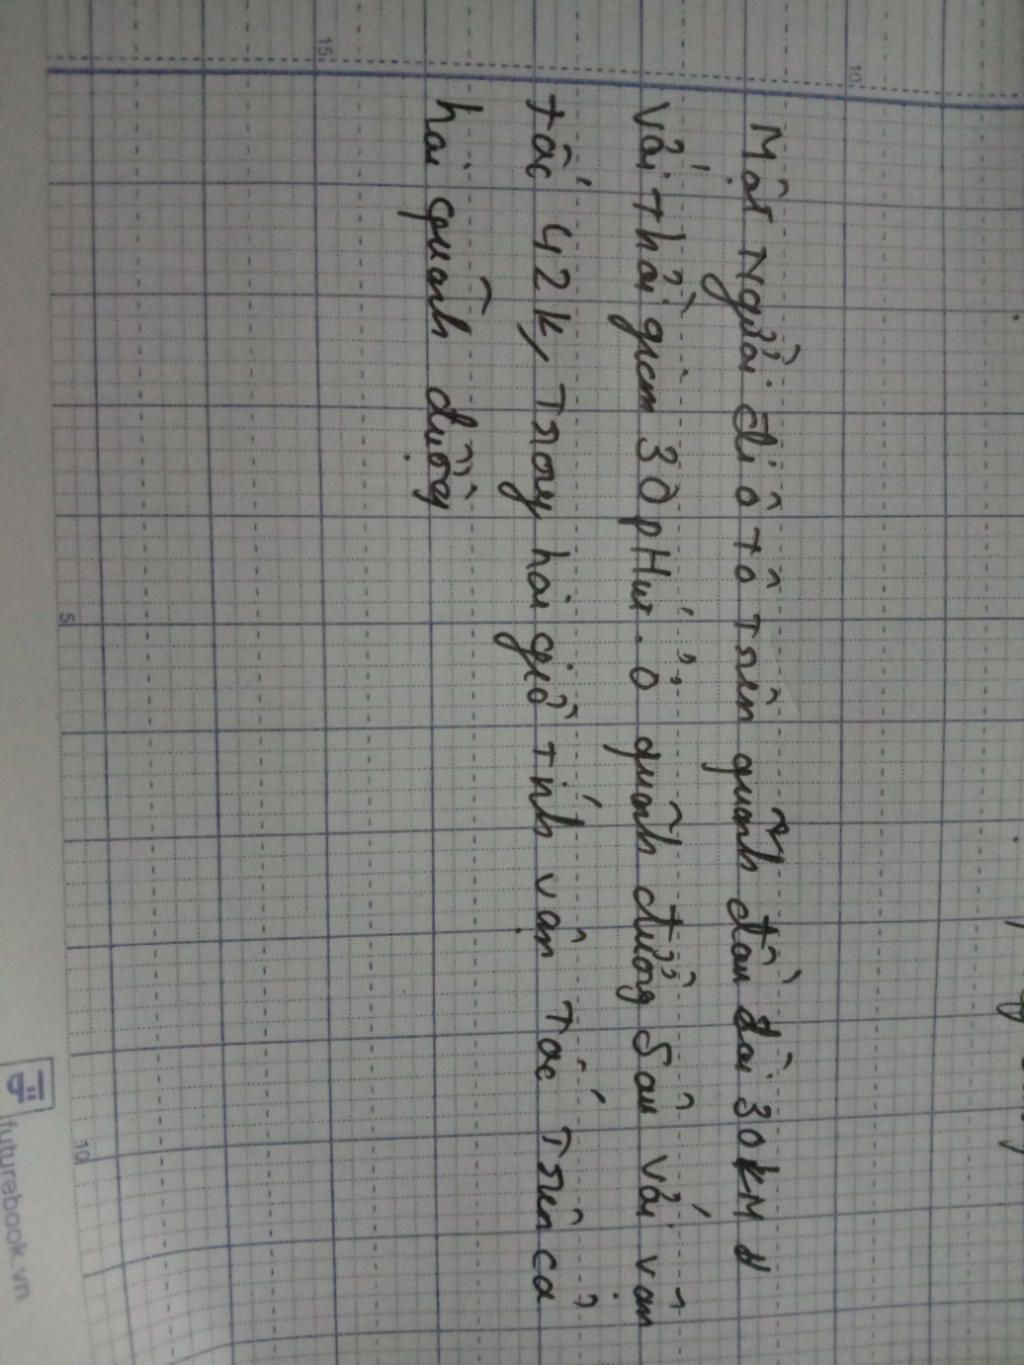 Một Người đi ô tô trên quãnh đầu dài 30KM
Với thời gian 30 pHút. ở quãnh đường sau với vận
tốc 42k, Trong hai giờ tính vận tốc Trên cả
hai quãnh đường
15
10
5
10
futurebook.vn